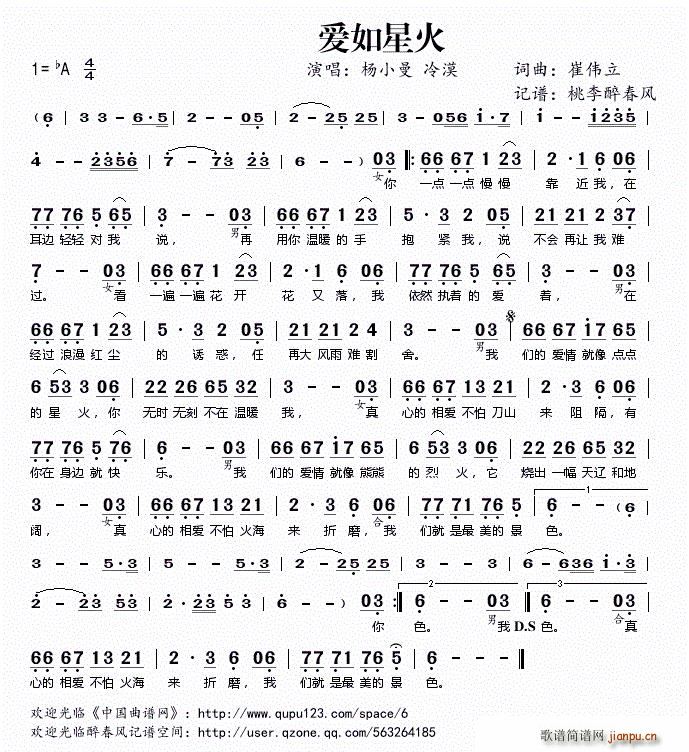 爱如星火
1=♭A 4/4 演唱：杨小曼 冷漠 词曲：崔伟立
记谱：桃李醉春风
(6 | 3 3 - 6·5 | 2 - - 05 | 2 - 25 25 | 3 - 05 56 | i - i·7 | i - - i235 |
4 - - 2356 | 7 - 73 23 | 6 - - - ) 03 |: 66 67 1 23 | 2·1 6 06 |
女你 一点一点慢慢 靠近我，在
77 76 5 65 | 3 - - 03 | 66 67 1 23 | 5·3 2 05 | 21 21 2 37 |
耳边轻轻对我 说， 男再 用你温暖的手 抱紧我，说 不会再让我难
7 - - 03 | 66 67 1 23 | 2·1 6 06 | 77 76 5 65 | 3 - - 03 |
过。 女看 一遍一遍花开 花又落，我 依然执着的爱 着， 男在
66 67 1 23 | 5·3 2 05 | 21 21 2 4 | 3 - - 03 | 66 67 i7 65 |
经过浪漫红尘 的诱惑，任 再大风雨难割 舍。 男我 们的爱情就像点点
6 53 3 06 | 22 26 65 32 | 3 - - 03 | 66 67 13 21 | 2·3 5 06 |
的星火，你 无时无刻不在温暖 我， 女真 心的相爱不怕刀山 来阻隔，有
77 76 5 76 | 6 - - 03 | 66 67 i7 65 | 6 53 3 06 | 22 26 65 32 |
你在身边就快 乐。 男我 们的爱情就像熊熊 的烈火，它 烧出一幅天辽和地
3 - - 03 | 66 67 13 21 | 2·3 6 06 | 77 71 765 | 6 - - (6 |
阔， 女真 心的相爱不怕火海 来折磨，合我 们就是最美的景 色。
3 - - 5·3 | 5 - - 5·3 | 2 - 2·5 25 | 3 - - - | 6 - 636 i·3 |
2 - 23 53 | 2·23 53 | 6 - - ) 03 :| 6 - - 03 | 6 - - 03 |
你 色。 男我 D.S 色。 合真
66 67 13 21 | 2·3 6 06 | 77 71 76 5 | 6 - - - |
心的相爱不怕火海 来折磨，我 们就是最美的景 色。
欢迎光临《中国曲谱网》：http://www.qupu123.com/space/6
欢迎光临醉春风记谱空间：http://user.qzone.qq.com/563264185
歌谱简谱网 jianpu.cn